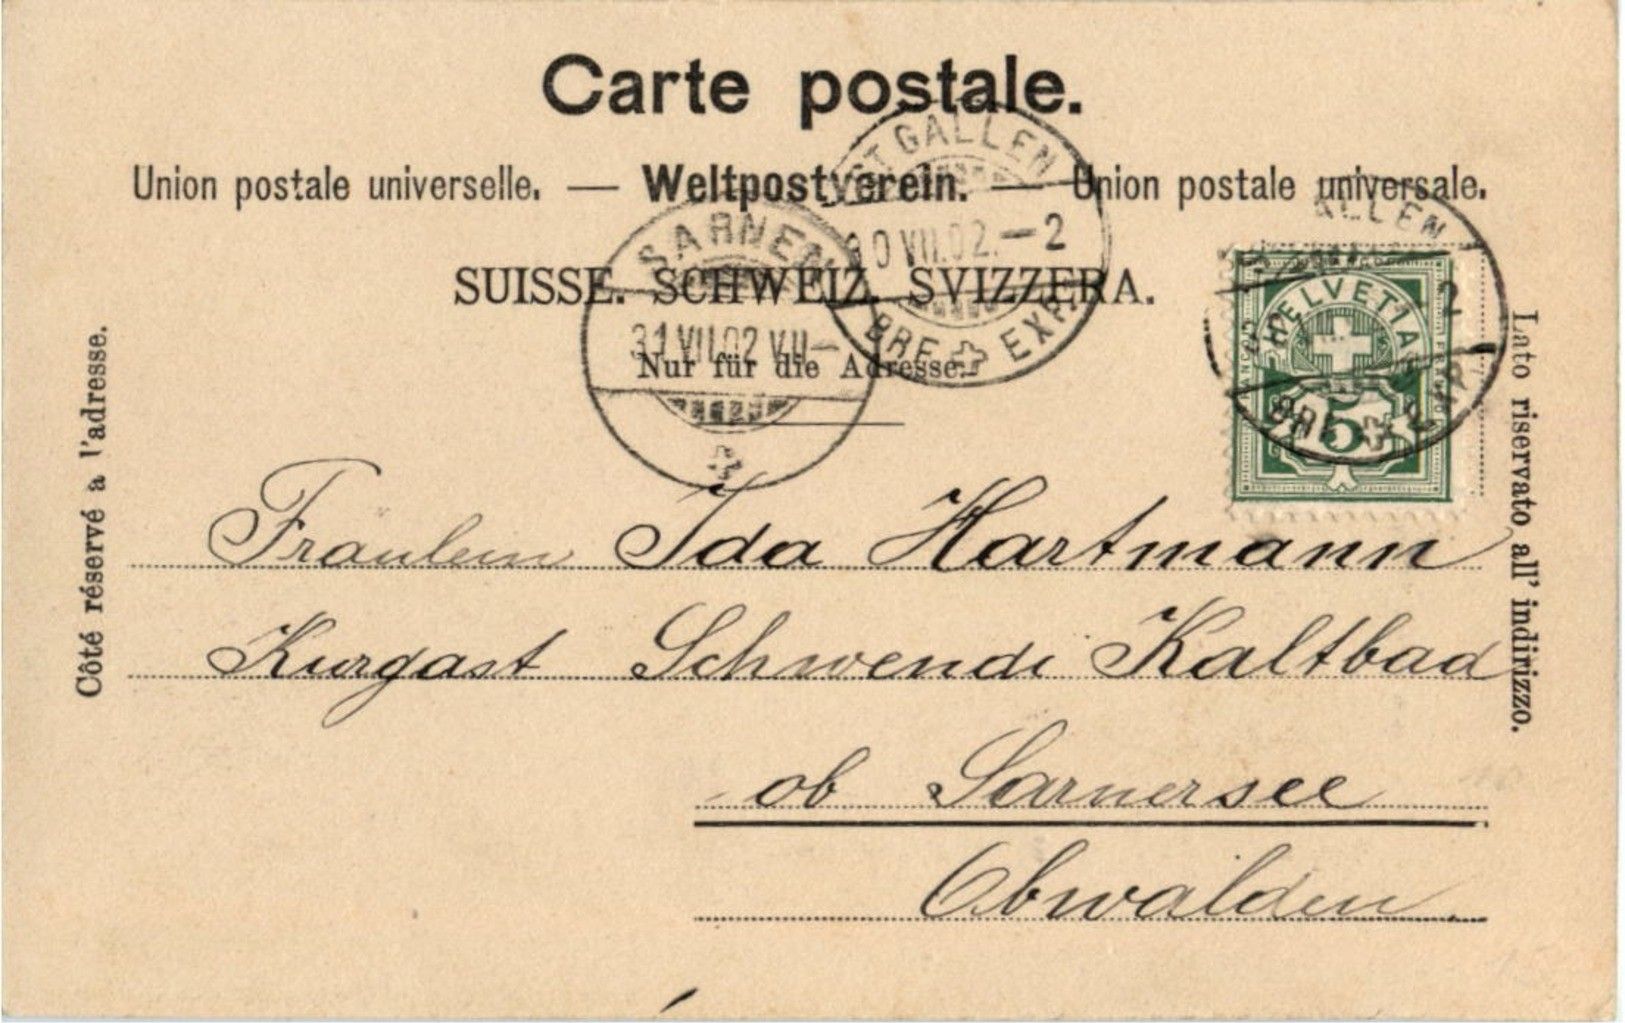 Carte postale.
Union postale universelle. — Weltpostverein. — Union postale universale.
SUISSE. SCHWEIZ. SVIZZERA.
Nur für die Adresse.
Côté réservé a l'adresse.
Lato riservato all' indirizzo.
ST GALLEN
30 VII.02.–2
BRF. EXP.
SARNEN
31 VII.02 VII–
ALLEN
2
BRF. EXP.
HELVETIA
5
Fräulein Ida Hartmann
Kurgast Schwendi Kaltbad
ob Sarnersee
Obwalden.